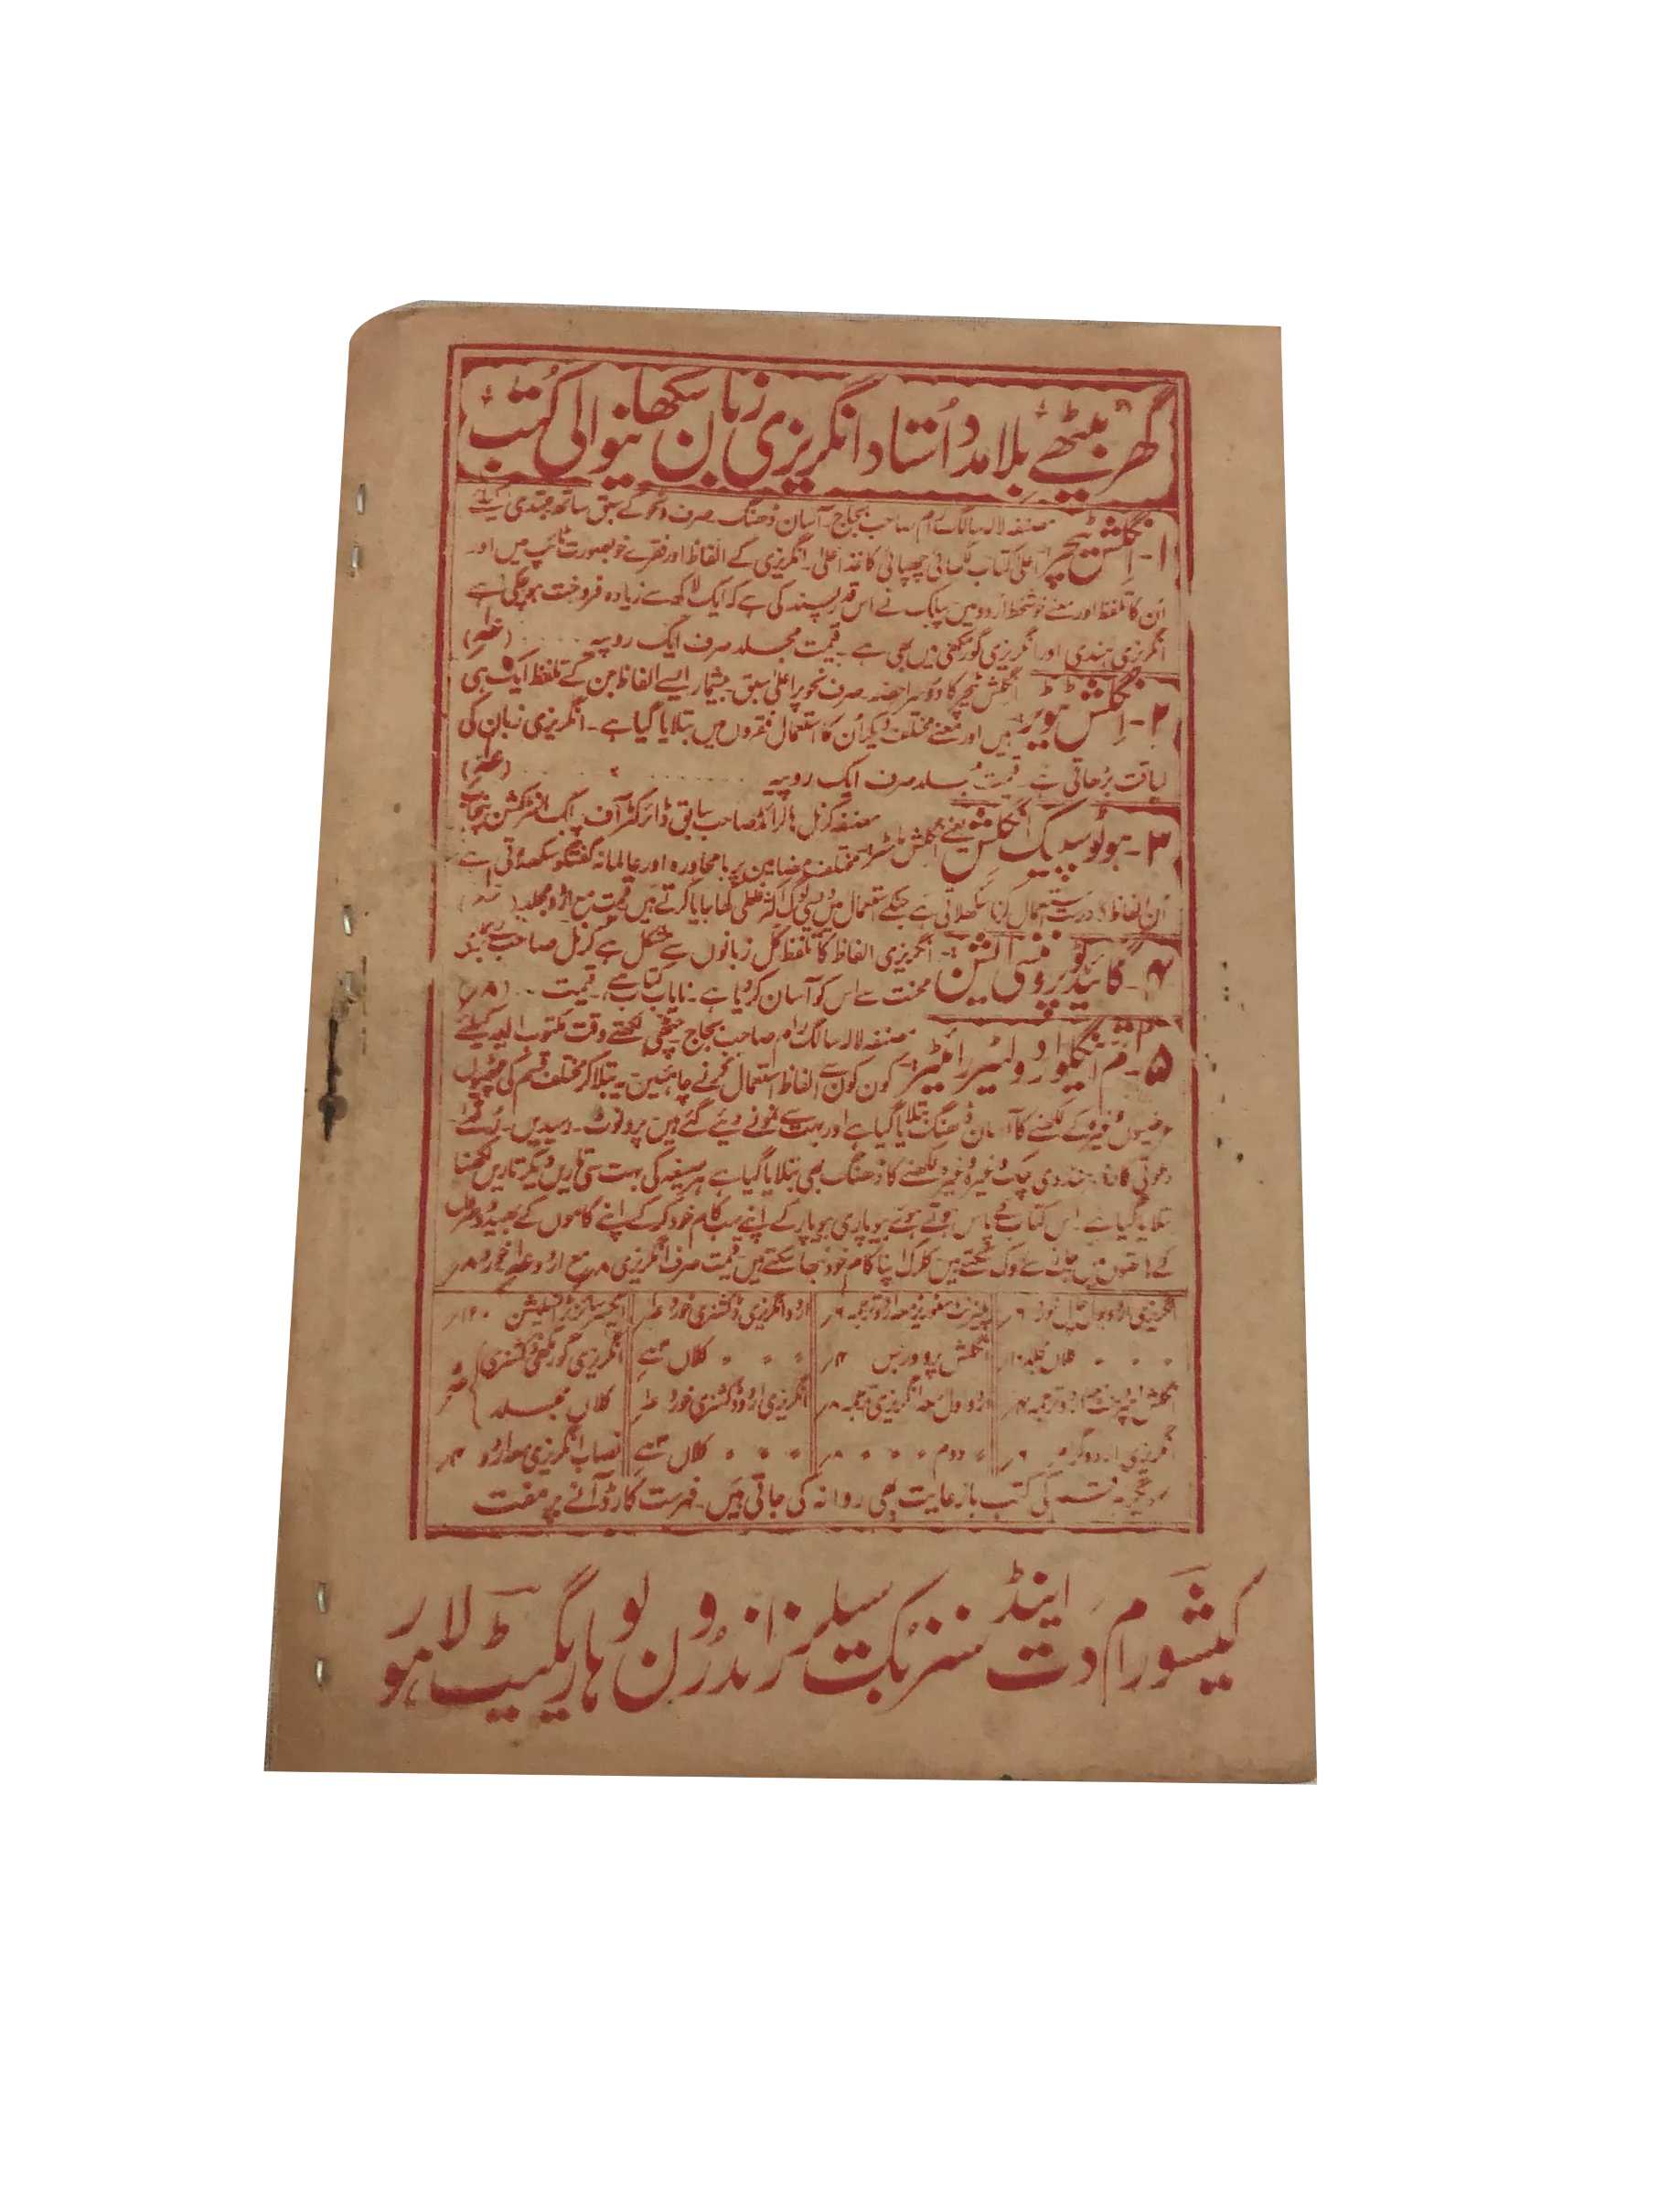 گھر بیٹھے بلا مدد اُستاد انگریزی زبان سکھانیوالی کُتب
۱- اِنگلش ٹیچر مصنفہ لالہ سالگ رام صاحب بجاج۔ آسان ڈھنگ۔ صرف و نحو کے سبق ساتھ مبتدی کیلئے
اعلیٰ کتاب لکھائی چھپائی کاغذ اعلیٰ۔ انگریزی کے الفاظ اور فقرے خوبصورت ٹائپ میں اور
اُن کا تلفظ اور معنے خوشخط اُردو میں پبلک نے اس قدر پسند کی ہے کہ ایک لاکھ سے زیادہ فروخت ہو چکی ہے
انگریزی ہندی اور انگریزی گورمکھی میں بھی ہے۔ قیمت مجلد صرف ایک روپیہ
۲- اِنگلش ٹیوٹر انگلش ٹیچر کا دُوسرا حصہ۔ صرف نحو پر اعلیٰ سبق۔ بیشمار ایسے الفاظ جن کے تلفظ ایک ہی
ہیں اور معنے مختلف دیکر اُن کا استعمال فقروں میں بتلایا گیا ہے۔ انگریزی زبان کی
لیاقت بڑھاتی ہے۔ قیمت مجلد صرف ایک روپیہ
۳- ہوٹو سپیک انگلش یعنے انگلش ماسٹر مصنفہ کرنل ہالرائڈ صاحب سابق ڈائرکٹر آف پبلک انسٹرکشن پنجاب
مختلف مضامین پر بامحاورہ اور عالمانہ گفتگو سکھلاتی ہے
اُن الفاظ کا درست استعمال کرنا سکھلاتی ہے جنکے استعمال میں دیسی لوگ اکثر غلطی کھا جایا کرتے ہیں قیمت مع اُردو مجلد
۴- گائیڈ ٹو پرونسی ایشن انگریزی الفاظ کا تلفظ کُل زبانوں سے مشکل ہے کرنل صاحب نے
محنت سے اس کو آسان کر دیا ہے۔ نایاب کتاب ہے۔ قیمت (۸ر)
۵- اینگلو اردو لیٹر رائٹر مصنفہ لالہ سالگ رام صاحب بجاج چٹھی لکھتے وقت مکتوب الیہ کیلئے
کون کون سے الفاظ استعمال کرنے چاہئیں۔ یہ بتلا کر مختلف قسم کی چٹھیوں
عرضیوں وغیرہ کے لکھنے کا آسان ڈھنگ بتلایا گیا ہے اور بہت سے نمونے دئیے گئے ہیں پرونوٹ۔ رسیدیں۔ رقعے
ہنڈوی چیک وغیرہ وغیرہ لکھنے کا ڈھنگ بھی بتلایا گیا ہے ہر صیغہ کی بہت سی تاریں دیکر تاریں لکھنا
بتلایا گیا ہے۔ اس کتاب کے پاس ہوتے ہوئے بیوپاری بیوپار کے اپنے سب کام خود کر کے اپنے کاموں کے بھید دُوسروں
کے ہاتھوں میں جانے سے روک سکتے ہیں کلرک اپنا کام خود نبھا سکتے ہیں قیمت صرف انگریزی ۸ر مع اُردو
انگریزی اُردو بول چال خورد ۶ر اُردو انگریزی ڈکشنری خورد ایکسرسائز ٹرانسلیشن
کلاں مجلد انگلش پرووربس کلاں انگریزی گورمکھی ڈکشنری
اُردو ترجمہ اُردو اول معہ انگریزی ترجمہ ۸ر انگریزی اُردو ڈکشنری خورد کلاں مجلد
انگریزی اُردو گرامر دوم ۸ر کلاں نصاب انگریزی معہ اُردو
کی کتب بازعایت بھی روانہ کی جاتی ہیں۔ فہرست کارڈ آنے پر مفت
کیشورام دت اینڈ سنز بک سیلرز اندرون لوہاریگیٹ لاہور